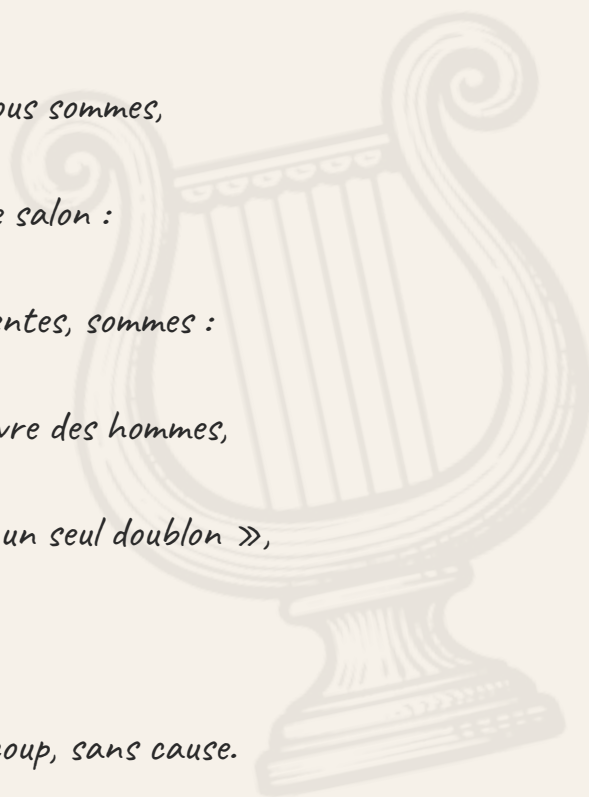 ous sommes,
e salon :
entes, sommes :
vre des hommes,
un seul doublon »,
coup, sans cause.